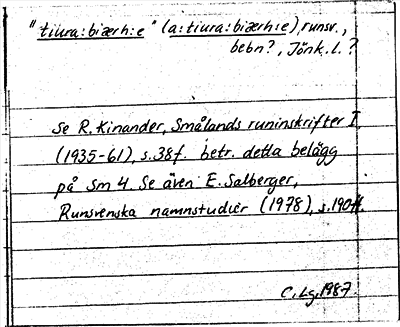 "tiura:biærh:e" (a:tiura:biærh:e), runsv.,
bebn?, Jönk. l.?
Se R. Kinander, Smålands runinskrifter I
(1935-61), s. 38f. betr. detta belägg
på Sm 4. Se även E. Salberger,
Runsvenska namnstudier (1978), s. 190ff.
C. Lg, 1987.